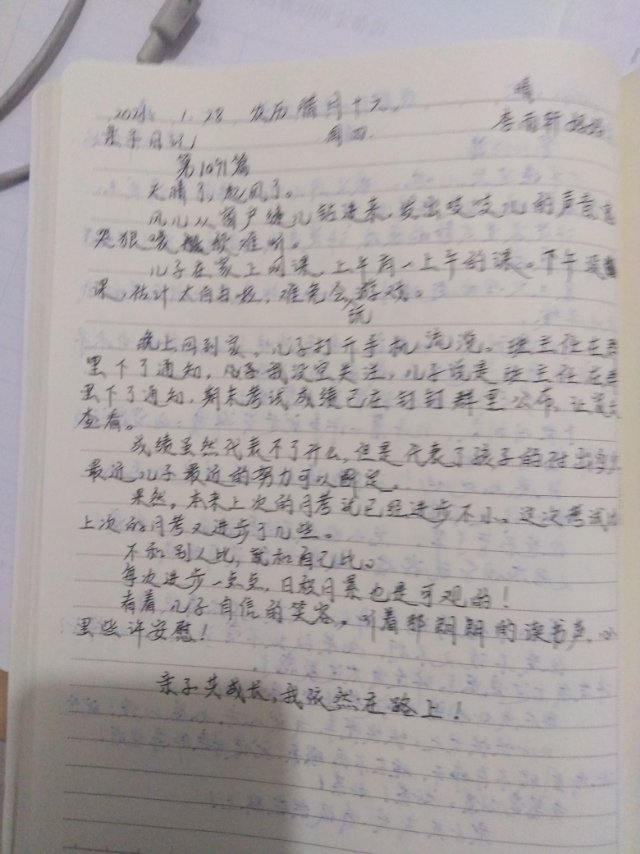 晴
2021. 1. 28 农历腊月十六. 李雨轩妈妈
亲子日记 周四.
第1091篇
天晴了, 起风了。
风儿从窗户缝儿钻进来, 发出吱吱儿的声音
哭狠嚎 难听。
儿子在家上网课, 上午有一上午的课。下午没
课, 估计太自由, 难免会玩游戏。
晚上回到家, 儿子打开手机浏览。班主任在
里下了通知, 我没空关注, 儿子说是班主任在群
里下了通知, 期末考试成绩已在钉钉群里公布, 让家长
查看。
成绩虽然代表不了什么, 但是代表了孩子的付出多少
最近儿子最近的努力可以断定。
果然, 本来上次的月考试已经进步不小。这次考试比
上次的月考又进步了几些。
不和别人比, 就和自己比。
每次进步一点点, 日放月累也是可观的!
看着儿子自信的笑容, 听着那朗朗的读书声, 心
里些许安慰!
亲子共成长, 我依然在路上!